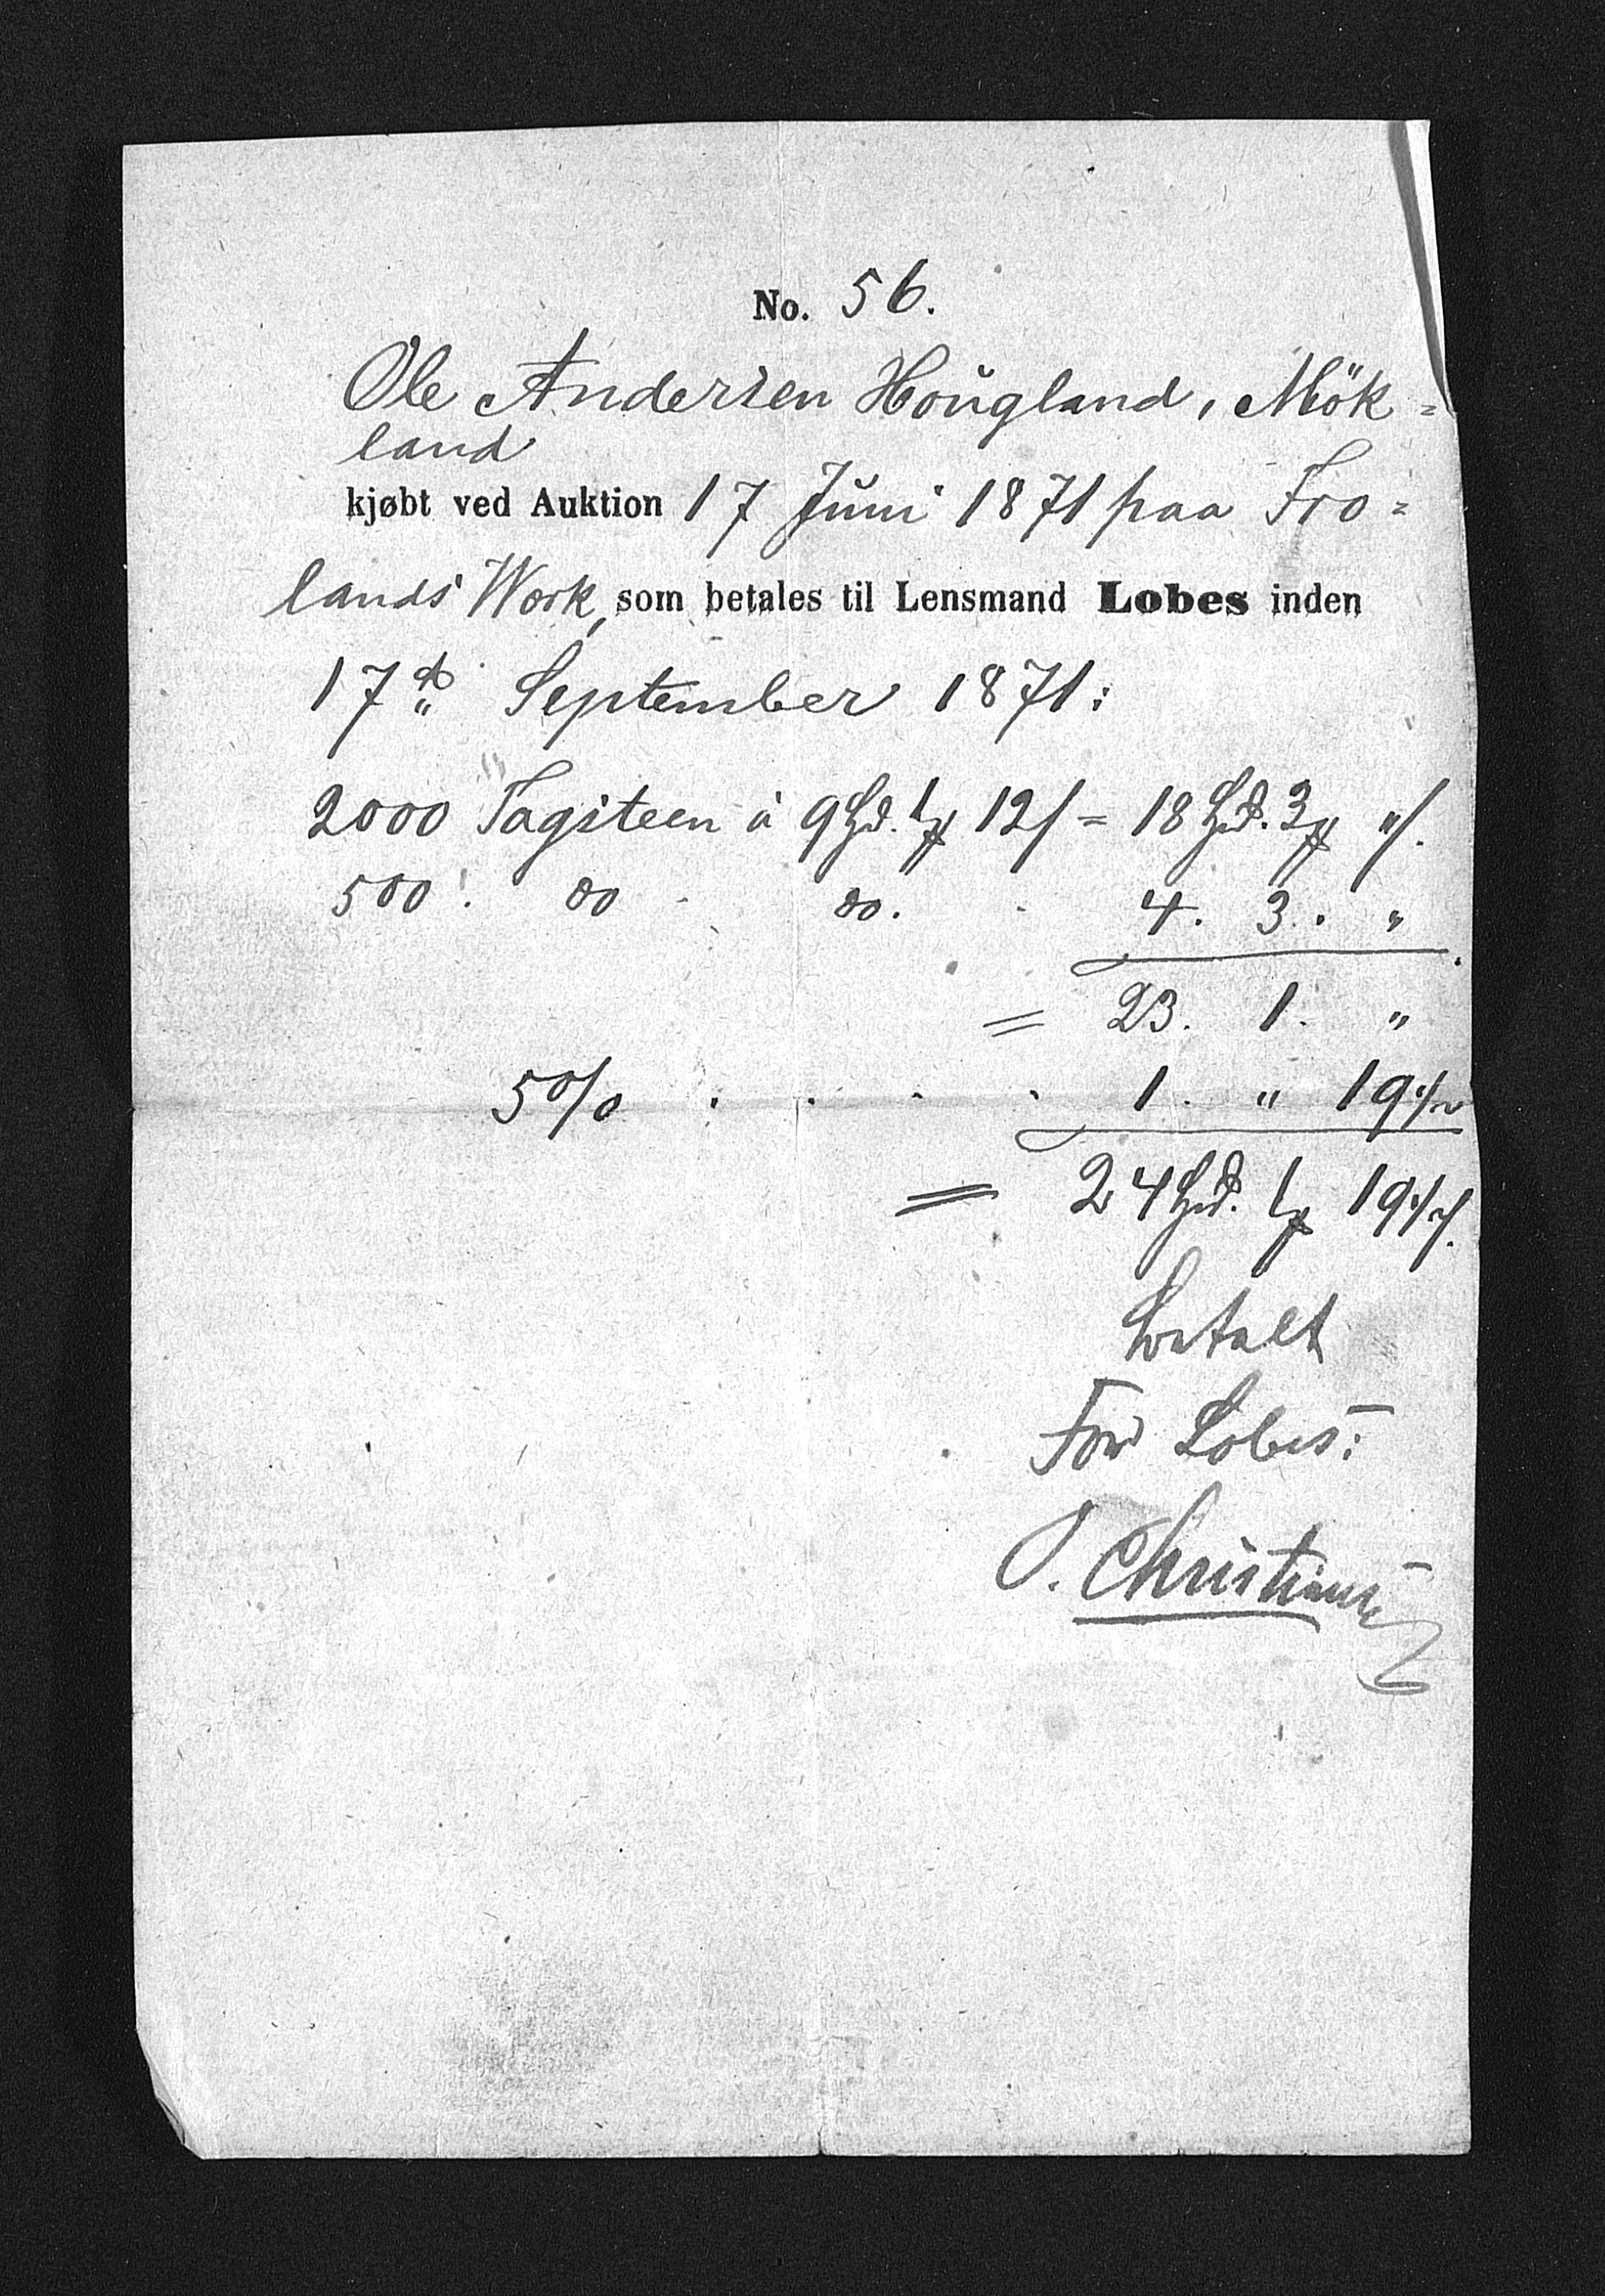 No. 56.
Ole Andersen Hougland, Mök=
land
kjøbt ved Auktion 17 Juni 1871 paa Fro=
lands Værk, som betales til Lensmand Lobes inden
17de September 1871:
2000 Tagsteen à 9 Spd. 1 ℔ 12 s = 18 Spd. 3 ℔ " s.
500. do do. 4. 3. "
= 23. 1. "
5 % . . . . 1. " 19 1/2
= 24 Spd. 1 ℔ 19 1/2 s.
betalt
For Lobes:
O. Christiansen